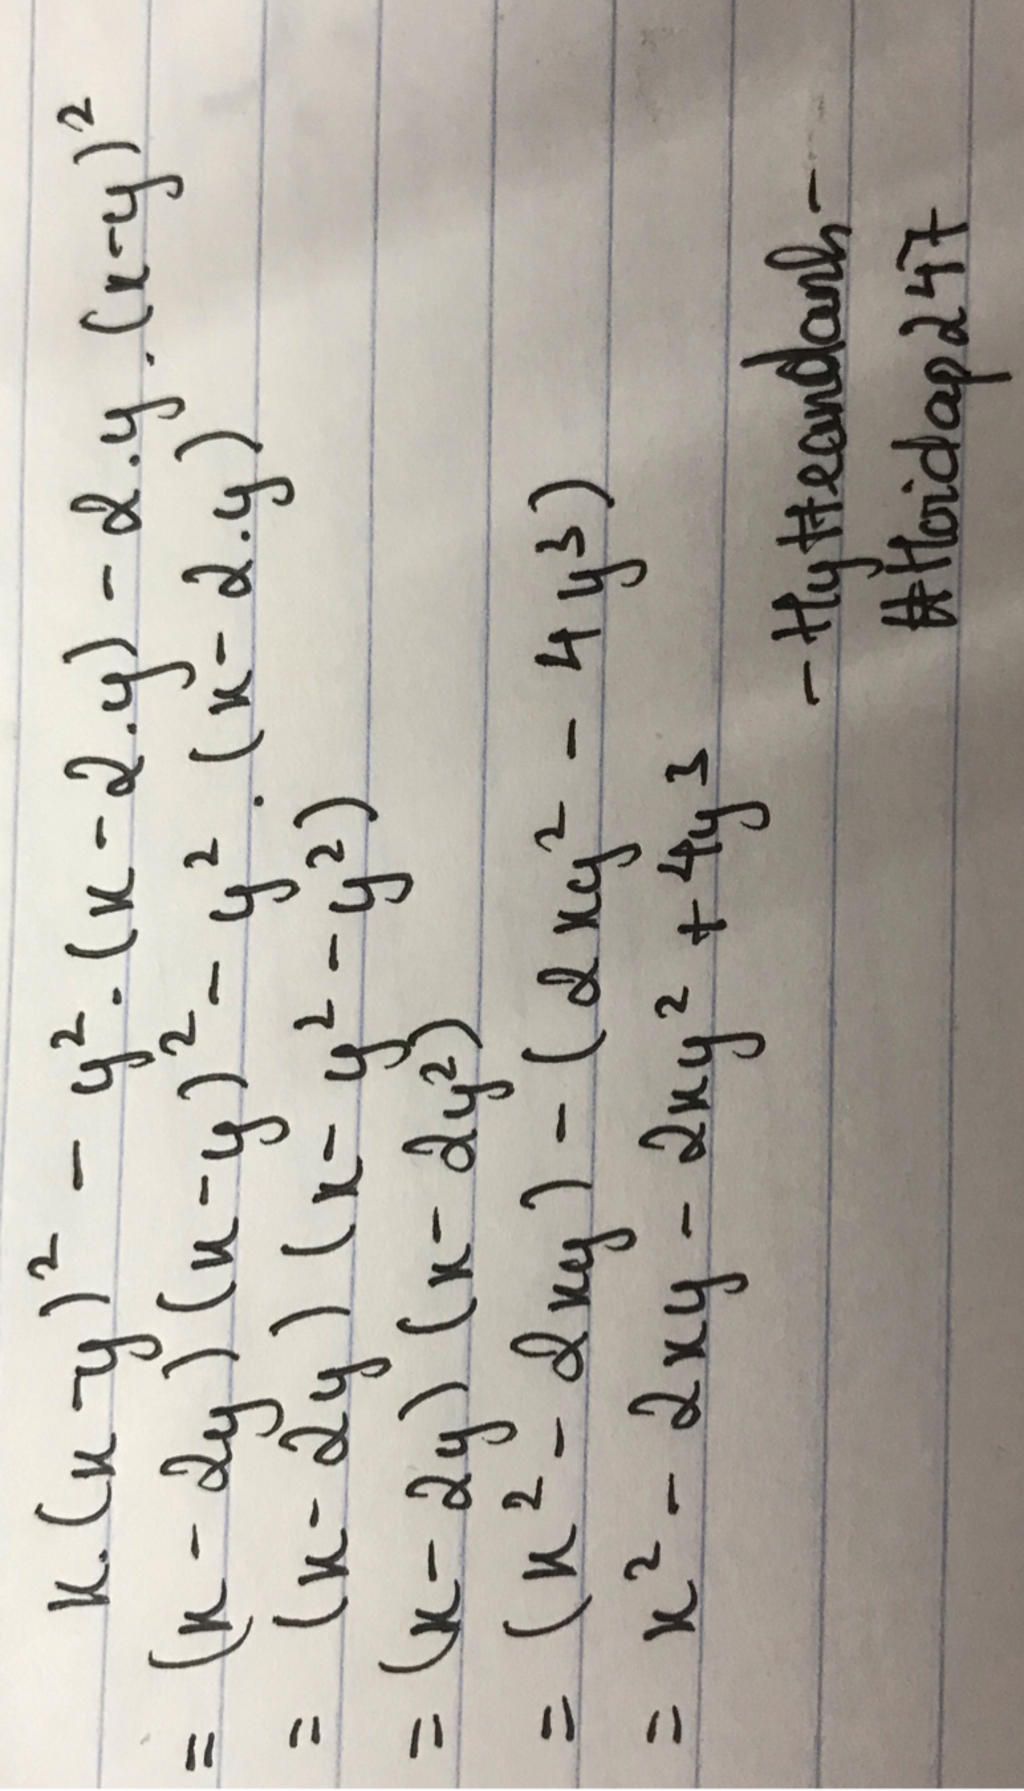 x.(x-y)² - y².(x-2.y) - 2.y.(x-y)²
= (x-2y)(x-y)² - y².(x-2.y)
= (x-2y)(x-y²-y²)
= (x-2y)(x-2y²)
= (x²-2xy)-(2xy²-4y³)
= x²-2xy-2xy²+4y³
-HyHeandanh-
#Hoidap247